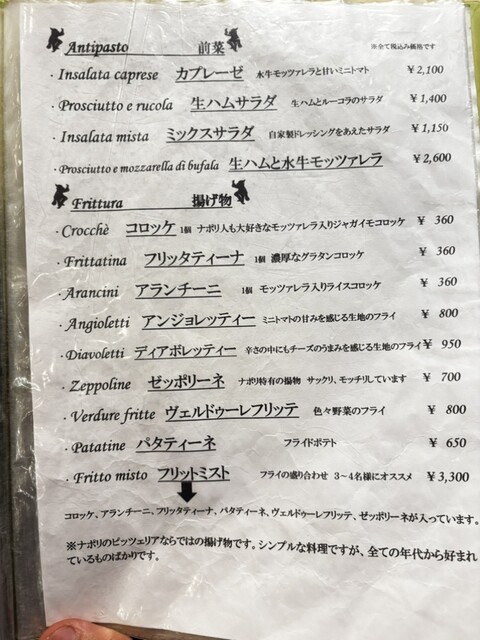 Antipasto 前菜 ※全て税込み価格です
・Insalata caprese カプレーゼ 水牛モッツァレラと甘いミニトマト ￥2,100
・Prosciutto e rucola 生ハムサラダ 生ハムとルーコラのサラダ ￥1,400
・Insalata mista ミックスサラダ 自家製ドレッシングをあえたサラダ ￥1,150
・Prosciutto e mozzarella di bufala 生ハムと水牛モッツァレラ ￥2,600
Frittura 揚げ物
・Crocchè コロッケ 1個 ナポリ人も大好きなモッツァレラ入りジャガイモコロッケ ￥ 360
・Frittatina フリッタティーナ 1個 濃厚なグラタンコロッケ ￥ 360
・Arancini アランチーニ 1個 モッツァレラ入りライスコロッケ ￥ 360
・Angioletti アンジョレッティー ミニトマトの甘みを感じる生地のフライ ￥ 800
・Diavoletti ディアボレッティー 辛さの中にもチーズのうまみを感じる生地のフライ ￥ 950
・Zeppoline ゼッポリーネ ナポリ特有の揚物 サックリ、モッチリしています ￥ 700
・Verdure fritte ヴェルドゥーレフリッテ 色々野菜のフライ ￥ 800
・Patatine パタティーネ フライドポテト ￥ 650
・Fritto misto フリットミスト フライの盛り合わせ 3～4名様にオススメ ￥3,300
コロッケ、アランチーニ、フリッタティーナ、パタティーネ、ヴェルドゥーレフリッテ、ゼッポリーネが入っています。
※ナポリのピッツェリアならではの揚げ物です。シンプルな料理ですが、全ての年代から好まれ
ているものばかりです。